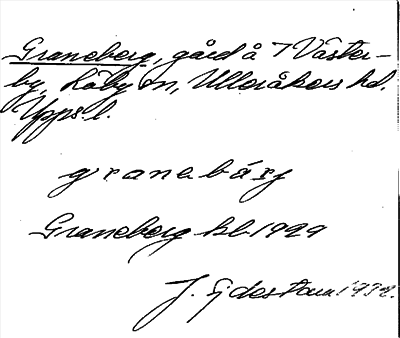 Graneberg, gård å 7 Väster-
by, Läby sn, Ulleråkers hd.
Upps. l.
granabärj
Graneberg kb. 1929
J. Sjdestam 1932.